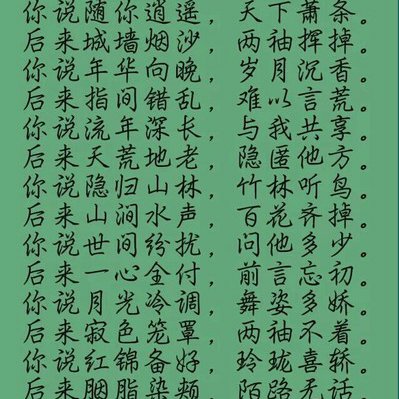 你说随你逍遥，天下萧条。
后来城墙烟沙，两袖挥掉。
你说年华向晚，岁月沉香。
后来指间错乱，难以言荒。
你说流年深长，与我共享。
后来天荒地老，隐匿他方。
你说隐归山林，竹林听鸟。
后来山涧水声，百花齐掉。
你说世间纷扰，问他多少。
后来一心全付，前言忘初。
你说月光冷调，舞姿多娇。
后来寂色笼罩，两袖不着。
你说红锦备好，玲珑喜轿。
后来胭脂染颊，陌路无话。